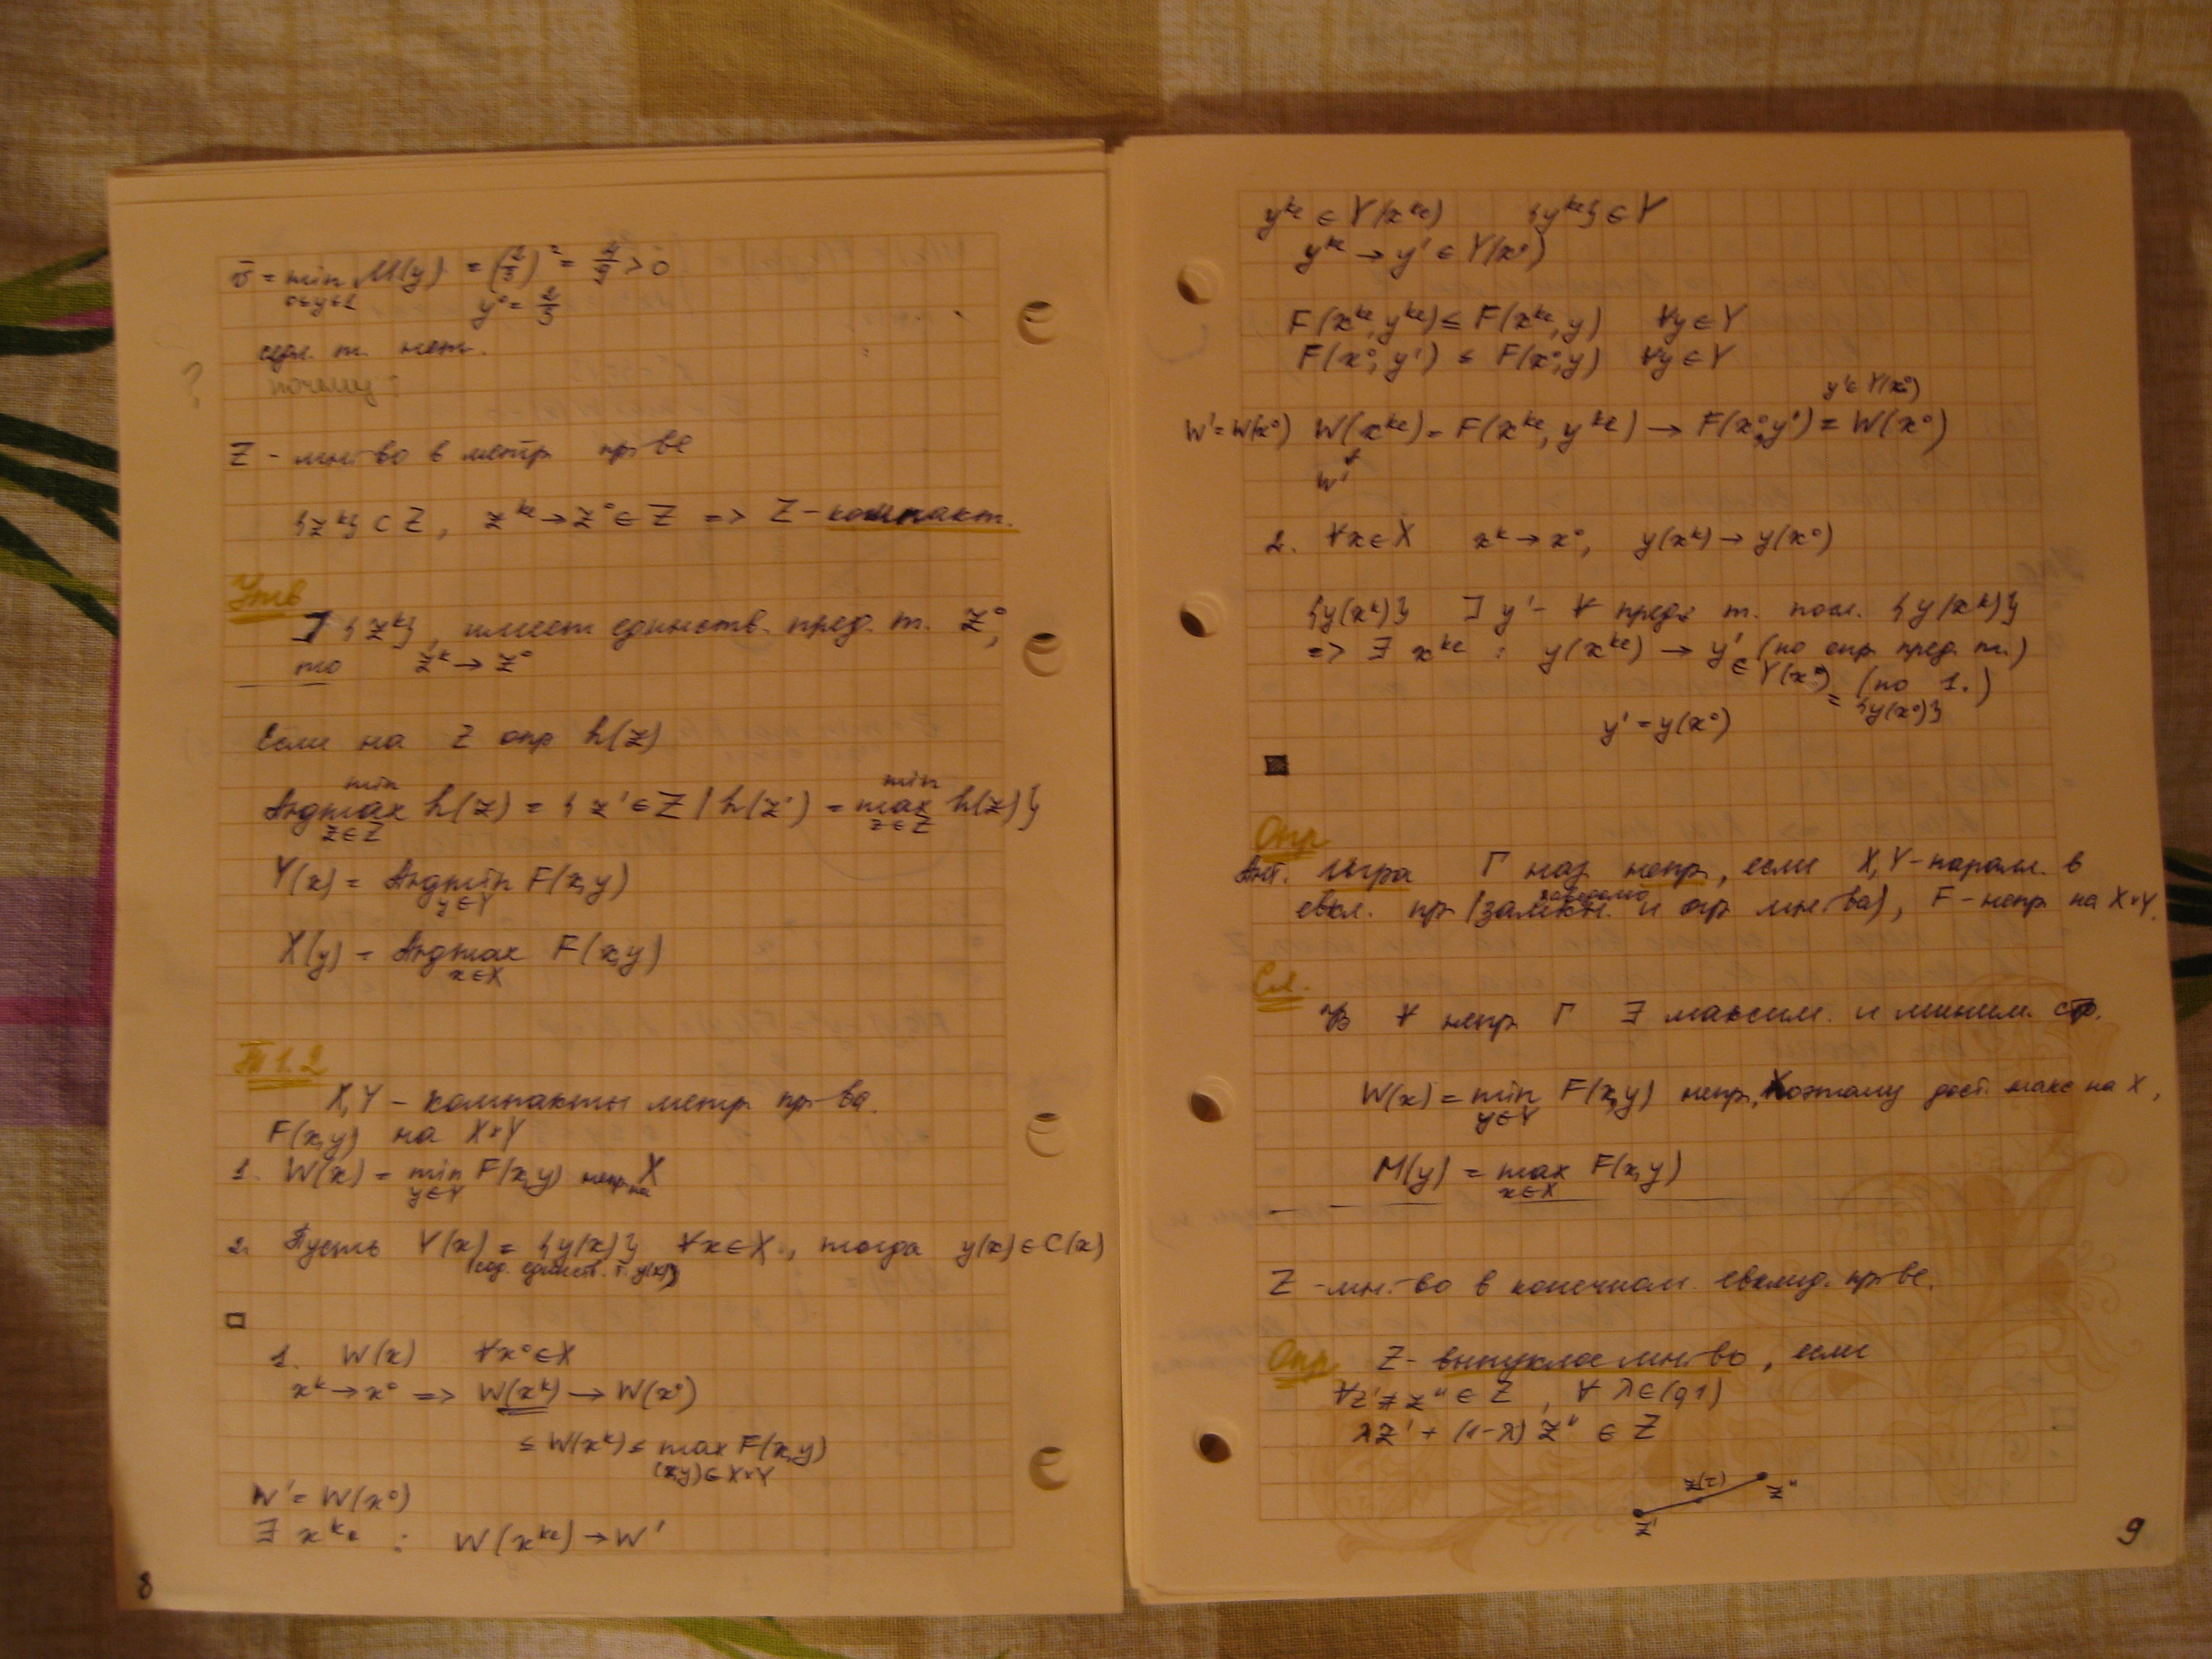 v̄ = min M(y) = (2/3)² = 4/9 > 0
0≤y≤1 y⁰ = 2/3
седл. т. нет.
? почему?
Z - мн-во в метр. пр-ве
{z^k} ⊂ Z, z^{ke} → z⁰ ∈ Z => Z - компакт.
Утв
∃ {z^k}, имеет единств. пред. т. z⁰,
то z^k → z⁰
Если на Z опр h(z)
min min
Argmax h(z) = { z' ∈ Z | h(z') = max h(z) }
z∈Z z∈Z
Y(x) = Argmin F(x,y)
y∈Y
X(y) = Argmax F(x,y)
x∈X
Т 1.2
X, Y - компакты метр. пр-ва.
F(x,y) на X×Y
1. W(x) = min F(x,y) непр. на X
y∈Y
2. Пусть Y(x) = {y(x)} ∀x∈X, тогда y(x) ∈ C(x)
(сод. единств. т. y(x))
□
1. W(x) ∀x⁰∈X
x^k → x⁰ => W(x^k) → W(x⁰)
≤ W(x^k) ≤ max F(x,y)
(x,y)∈X×Y
W' = W(x⁰)
∃ x^{ke} : W(x^{ke}) → W'
8
y^{ke} ∈ Y(x^{ke}) {y^{ke}} ∈ Y
y^{ke} → y' ∈ Y(x⁰)
F(x^{ke}, y^{ke}) ≤ F(x^{ke}, y) ∀y∈Y
F(x⁰, y') ≤ F(x⁰, y) ∀y∈Y
y'∈Y(x⁰)
W'=W(x⁰) W(x^{ke}) = F(x^{ke}, y^{ke}) → F(x⁰, y') = W(x⁰)
↓
W'
2. ∀x∈X x^k → x⁰, y(x^k) → y(x⁰)
{y(x^k)} ∃ y' - ∀ пред. т. посл. {y(x^k)}
=> ∃ x^{ke} : y(x^{ke}) → y' (по опр. пред. т.)
∈ Y(x⁰) (по 1.)
= {y(x⁰)}
y' = y(x⁰)
■
Опр
Ант. игра Γ наз. непр, если X, Y - паралл. в
евкл. пр (замкн. и огр мн-ва), F - непр на X×Y.
Сл.
В ∀ непр Γ ∃ максим. и миним. стр.
W(x) = min F(x,y) непр, поэтому дост. макс на X,
y∈Y
M(y) = max F(x,y)
x∈X
Z - мн-во в конечном. евклид. пр-ве.
Опр Z - выпуклое мн-во, если
∀z' ≠ z" ∈ Z, ∀ λ∈(0,1)
λz' + (1-λ) z" ∈ Z
z(λ) z"
z'
9